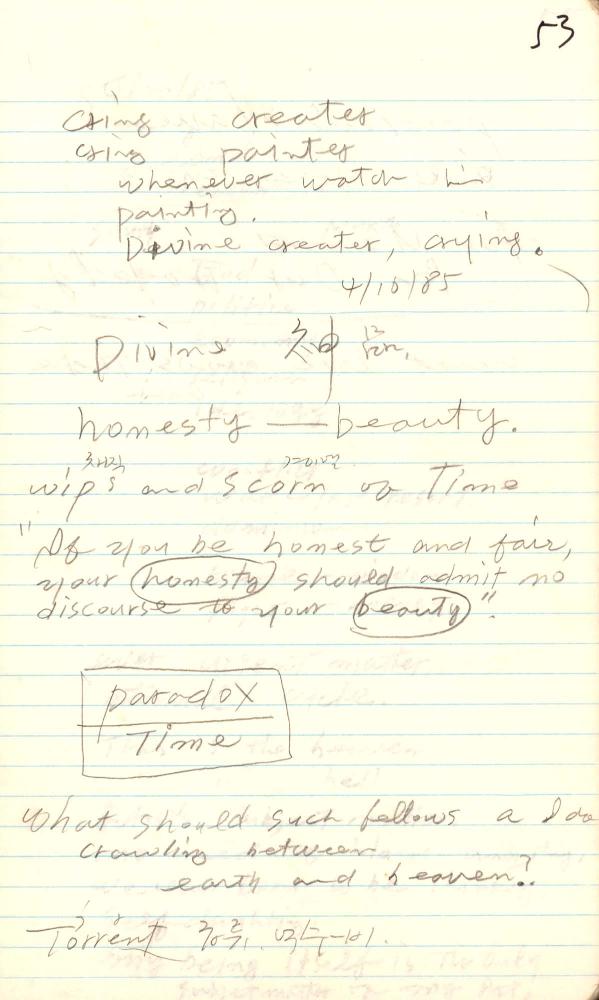 53
Csing creater
csing painter
whenever watch
painting.
Divine creater, crying.
4/16/85
Divine 神
honesty — beauty.
채찍
wip's and scorn of Time
"If you be honest and fair,
your honesty should admit no
discourse to your beauty".
paradox
Time
What should such fellows a I do
crawling between
earth and heaven?
Torrent 격류.